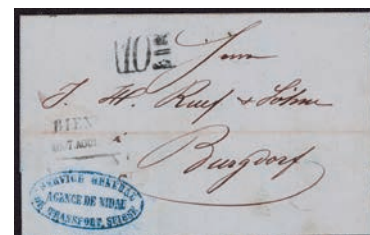 10
Herrn
J. H. Ruef & Söhne
BIEN
7 AOUT
à
Burgdorf
SERVICE GENERAL
AGENCE DE NIDAU
DE TRANSPORT SUISSE